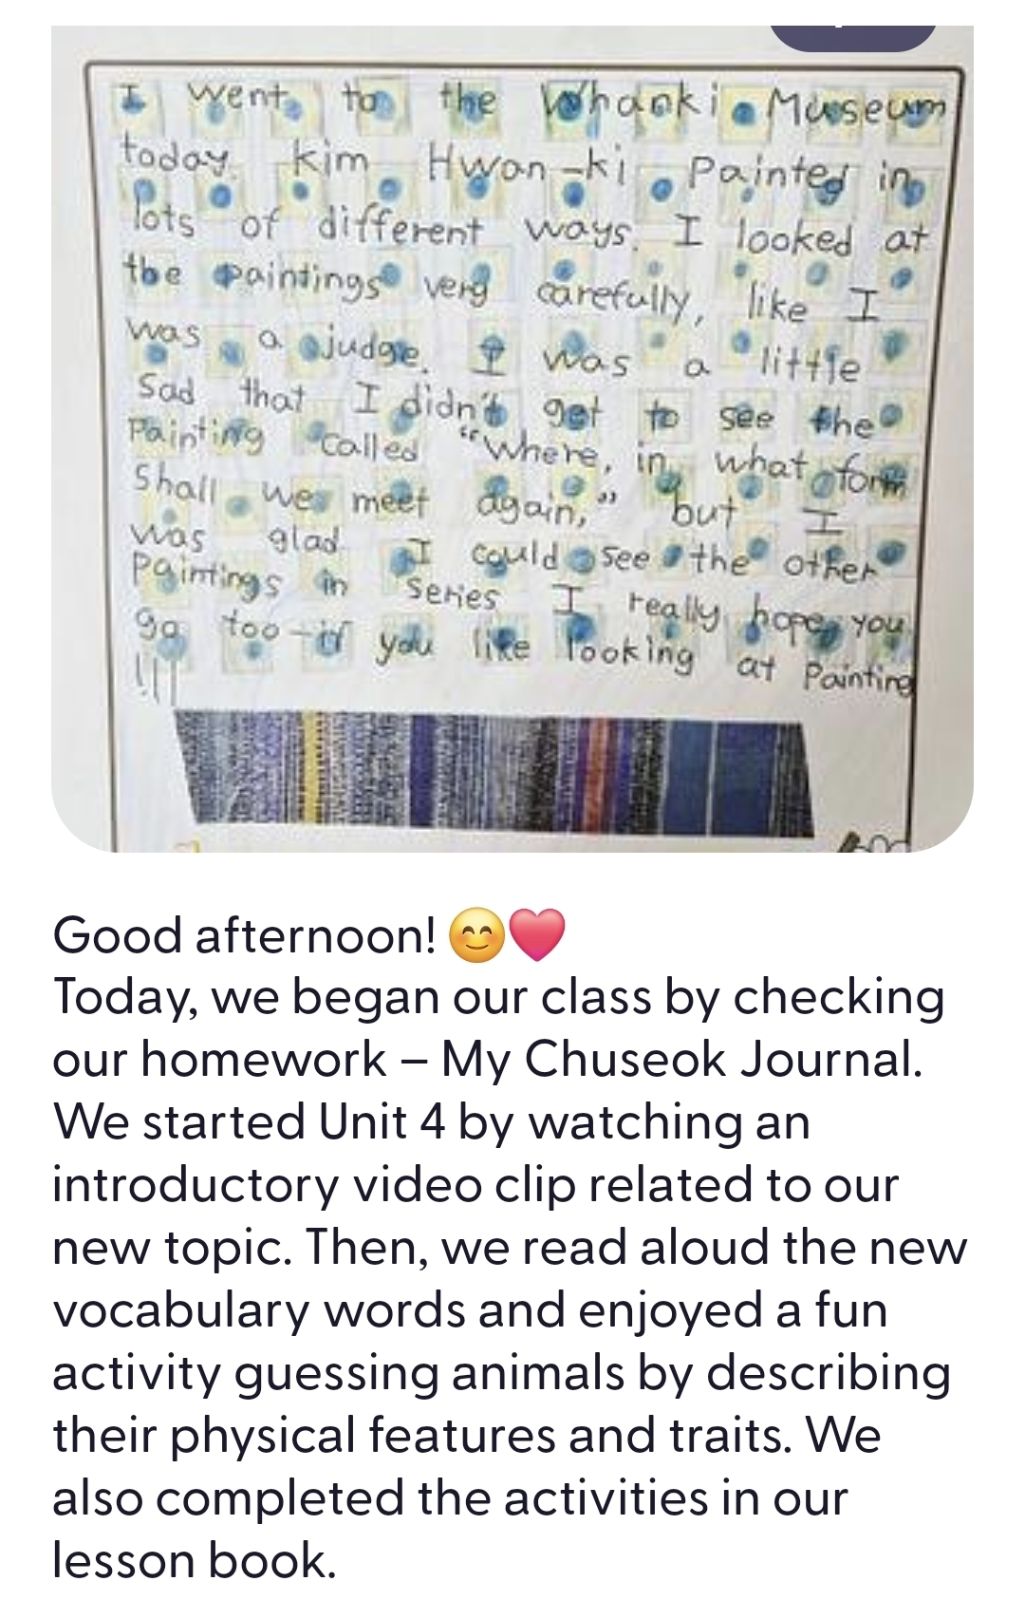 I went to the Whanki Museum
today. kim Hwan-ki Painted in
lots of different ways. I looked at
the paintings very carefully, like I
was a judge. I was a little
Sad that I didn't get to see the
Painting called "where, in what form
Shall we meet again," but I
was glad I could see the other
Paintings in series I really hope you
go too-if you like looking at Painting
!!!
Good afternoon! 😊❤️
Today, we began our class by checking
our homework – My Chuseok Journal.
We started Unit 4 by watching an
introductory video clip related to our
new topic. Then, we read aloud the new
vocabulary words and enjoyed a fun
activity guessing animals by describing
their physical features and traits. We
also completed the activities in our
lesson book.